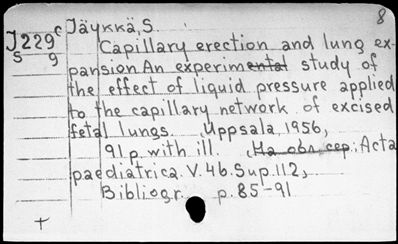 8
J229c Jäykkä, S.
5 9 Capillary erection and lung ex-
pansion An experimental study of
the effect of liquid pressure applied
to the capillary network of excised
fetal lungs. Uppsala, 1956,
91 p. with ill. На обл. сер.: Acta
paediatrica. V. 46. Sup. 112,
Bibliogr. p. 85-91
+